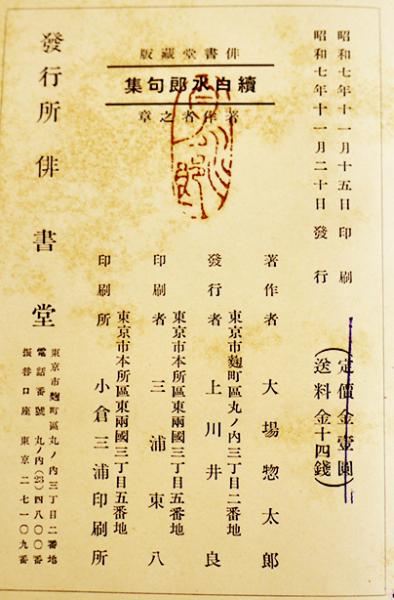 昭和七年十一月十五日印刷
昭和七年十一月二十日發行
定價金壹圓
(送料金十四錢)
俳書堂藏版
續白水郎句集
著作者之章
著作者 大場惣太郎
東京市麴町區丸ノ内三丁目二番地
發行者 上川井良
東京市本所區東兩國三丁目五番地
印刷者 三浦東八
東京市本所區東兩國三丁目五番地
印刷所 小倉三浦印刷所
發行所 俳書堂
東京市麴町區丸ノ内三丁目二番地
電話番號 丸ノ内(23)四八〇〇番
振替口座 東京二七一〇九番